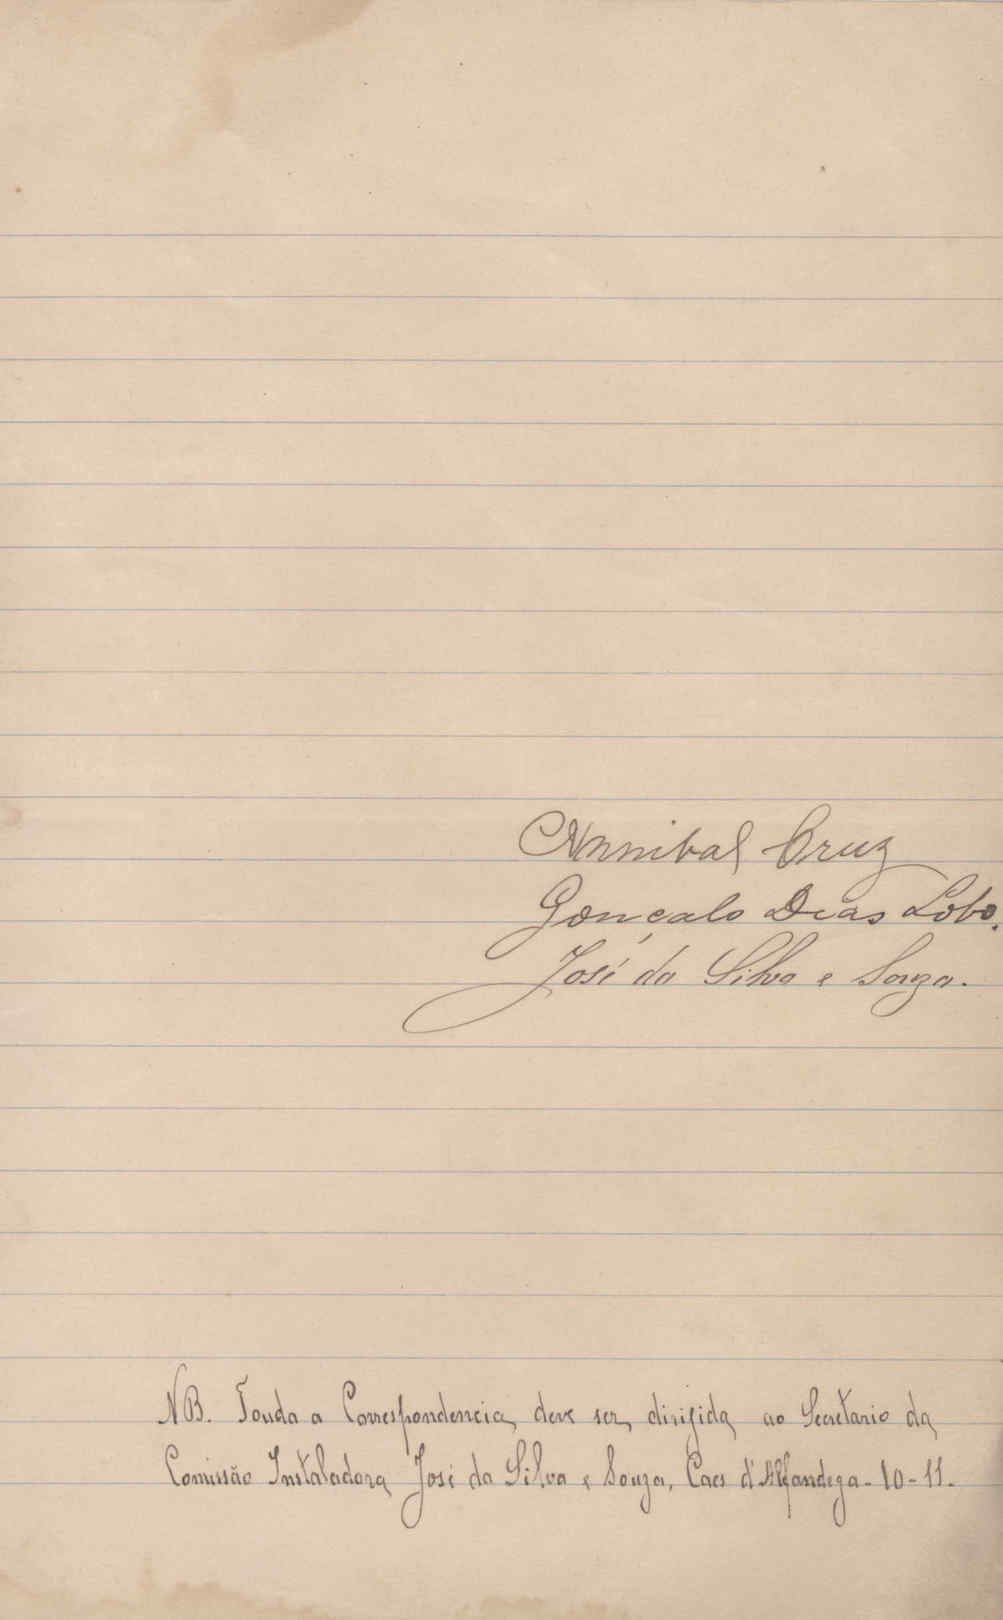 Annibal Cruz
Gonçalo Dias Lobo.
José da Silva e Souza.
NB. Touda a Correspondencia, deve ser, dirijida ao Secretario da
Comissão Instaladora José da Silva e Souza, Caes d'Alfandega - 10 - 11.